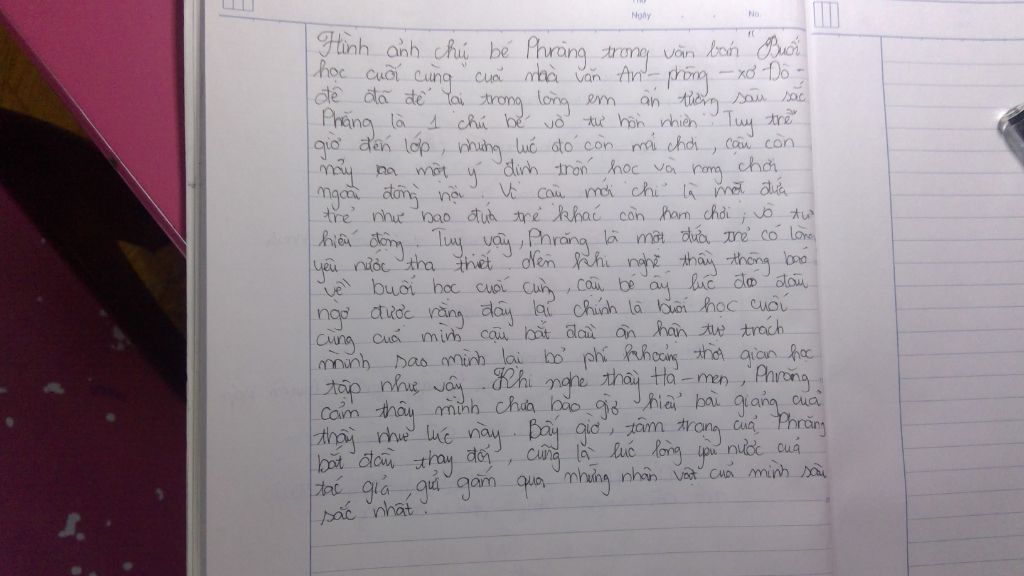 Ngày . . No.
Hình ảnh chú bé Phrăng trong văn bản "Buổi
học cuối cùng của nhà văn An-phông-xơ-Đô-
đê đã để lại trong lòng em ấn tượng sâu sắc
Phăng là 1 chú bé vô tư hồn nhiên. Tuy trễ
giờ đến lớp, nhưng lúc đó còn mải chơi, cậu còn
nảy ra một ý định trốn học và rong chơi
ngoài đồng nội. Vì cậu mới chỉ là một đứa
trẻ như bao đứa trẻ khác còn ham chơi, vô tư
hiếu động. Tuy vậy, Phrăng là một đứa trẻ có lòng
yêu nước tha thiết đến khi nghe thầy thông báo
về buổi học cuối cùng, cậu bé ấy lúc đó đâu
ngờ được rằng đây lại chính là buổi học cuối
cùng của mình cậu bắt đầu ân hận tự trách
mình sao mình lại bỏ phí khoảng thời gian học
tập như vậy. Khi nghe thầy Ha-men, Phrăng
cảm thấy mình chưa bao giờ hiểu bài giảng của
thầy như lúc này. Bây giờ, tâm trạng của Phrăng
bắt đầu thay đổi, cũng là lúc lòng yêu nước của
tác giả gửi gắm qua những nhân vật của mình sâu
sắc nhất.